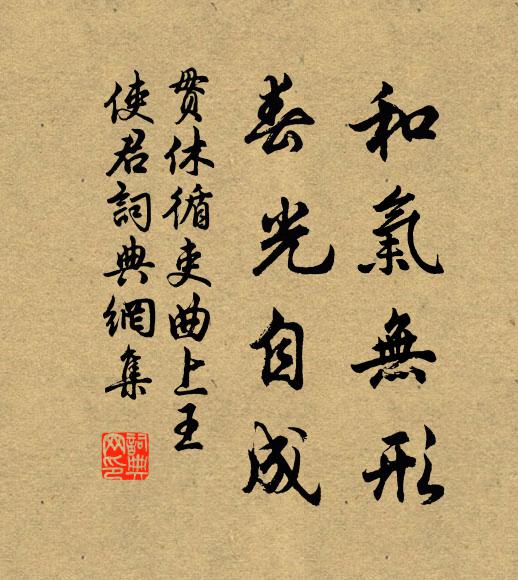 和氣無形
春光自成
貫休循吏曲上王
使君詞典網集
詞典
網印